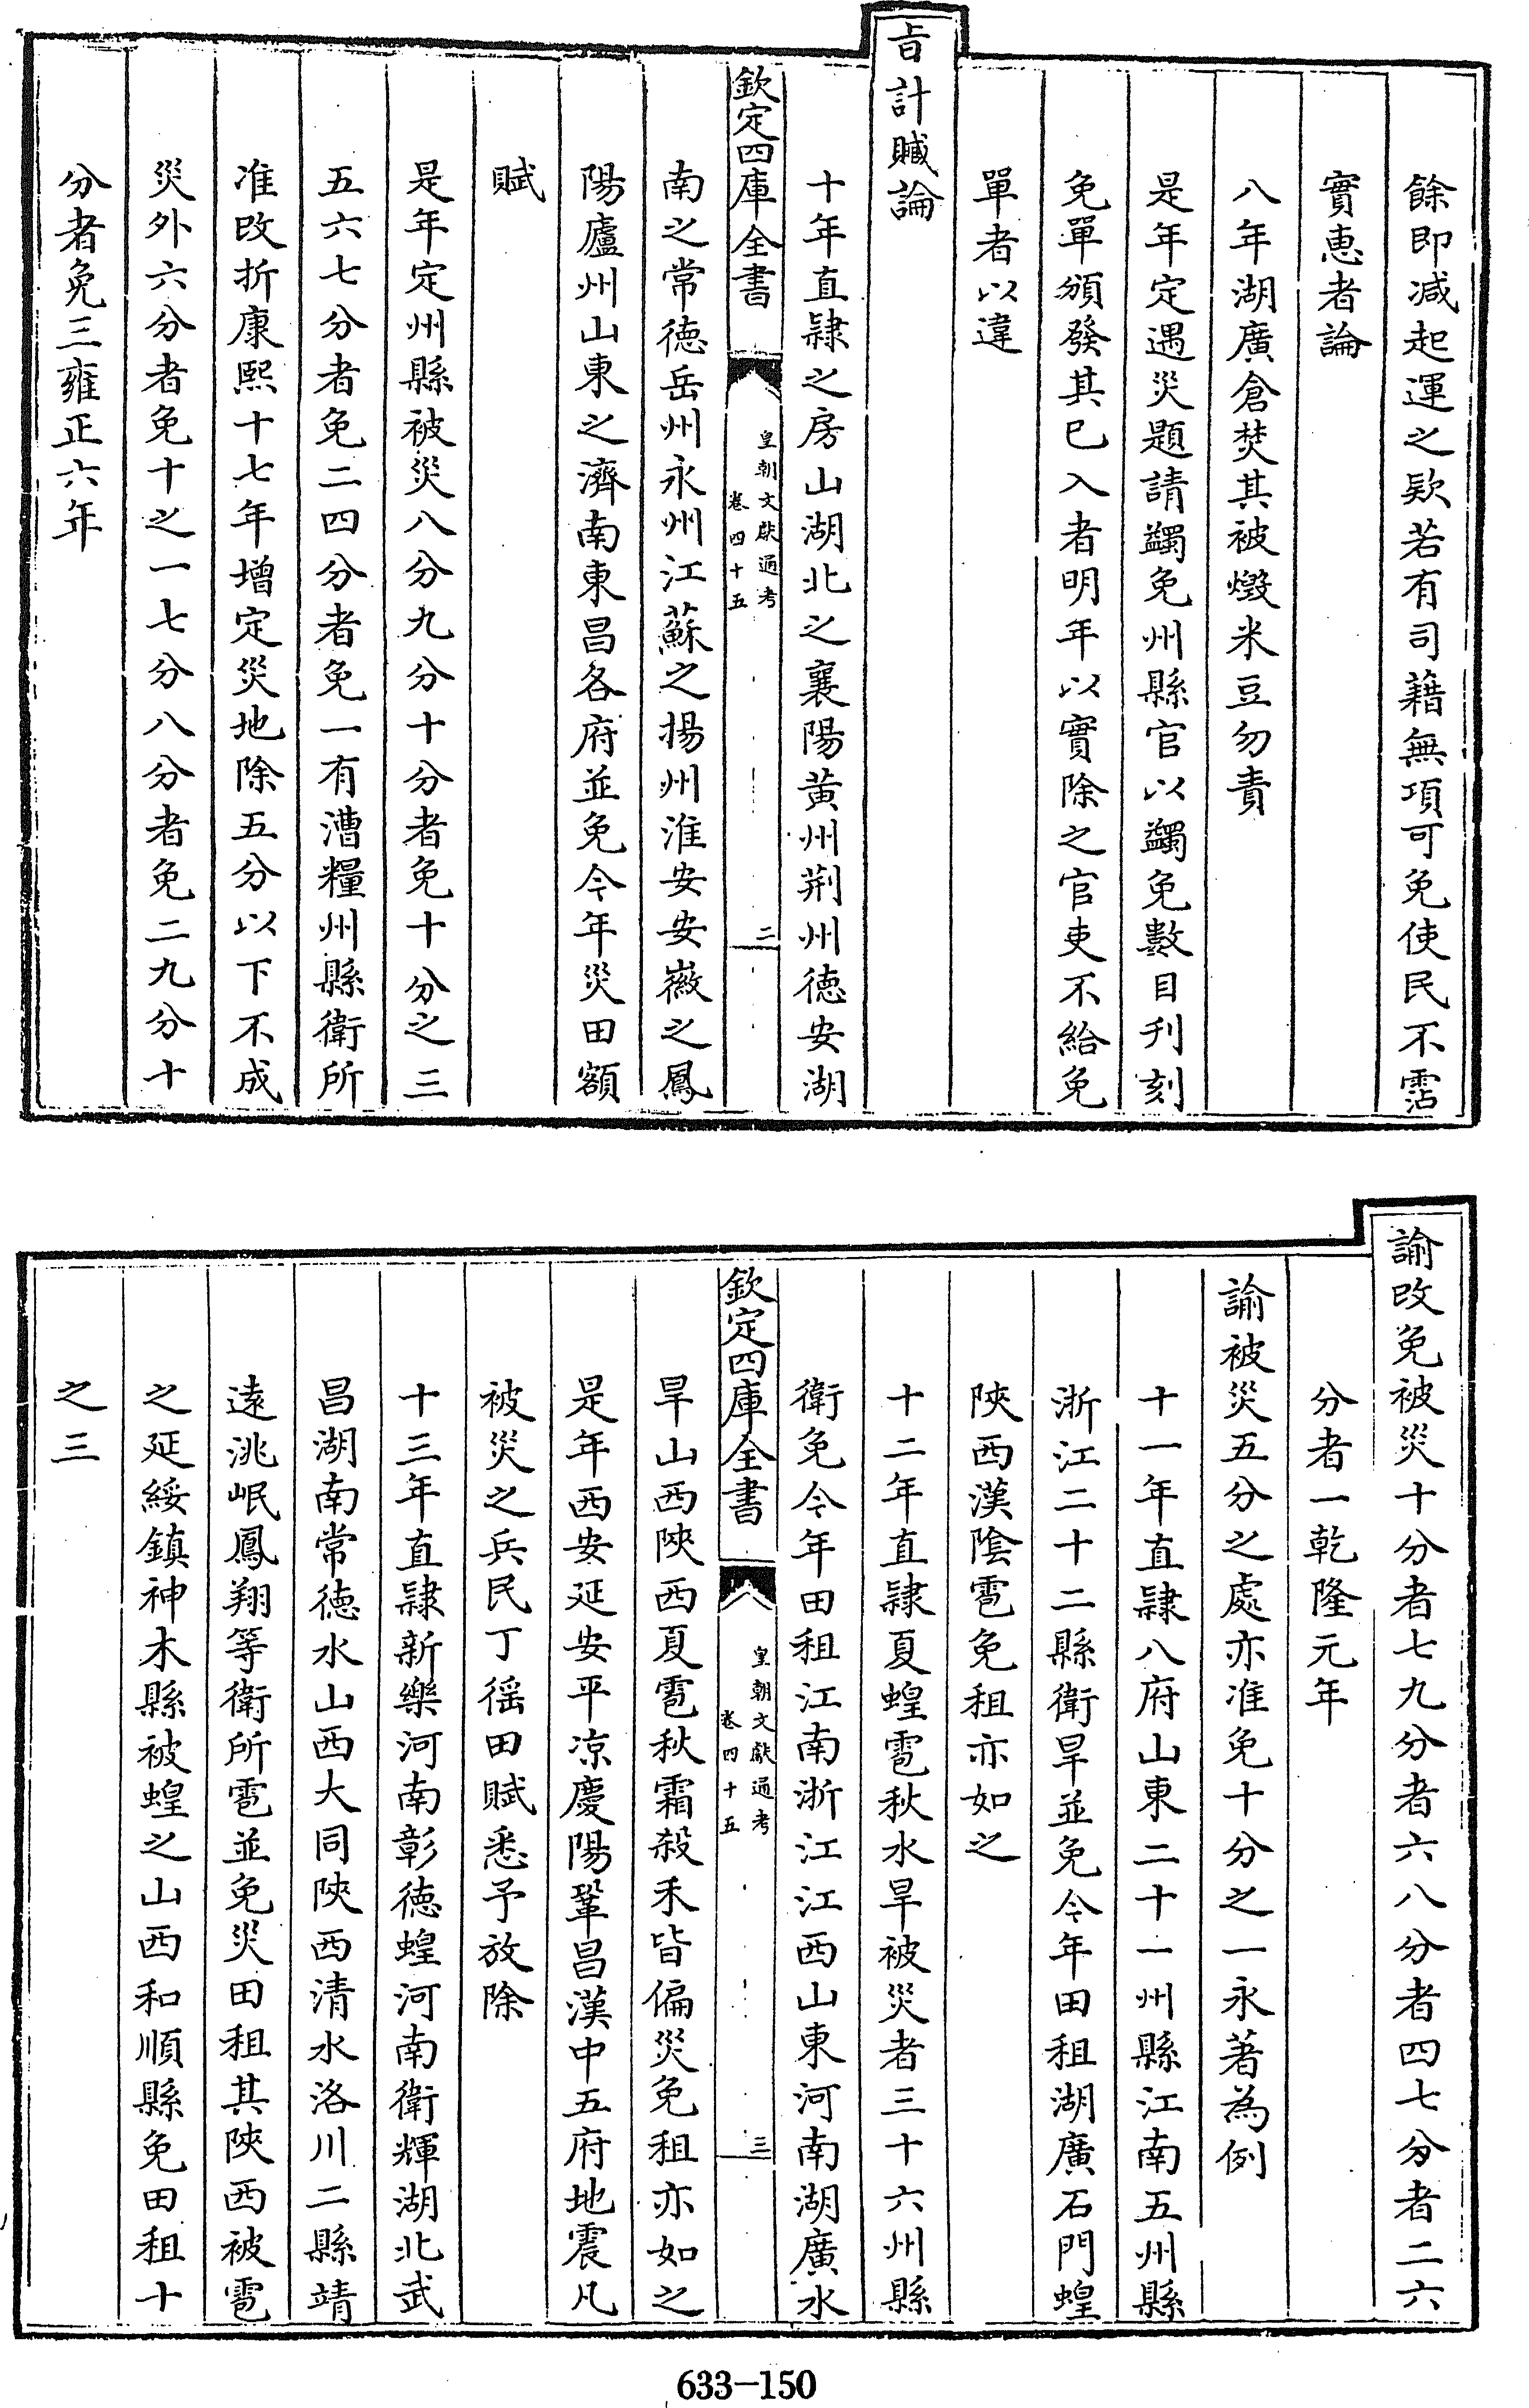 餘即減起運之欵若有司藉無項可免使民不霑
實惠者論
八年湖廣倉焚其被燬米豆勿責
是年定遇災題請蠲免州縣官以蠲免數目刋刻
免單頒發其已入者明年以實除之官吏不給免
單者以違
㫖計贓論
十年直隸之房山湖北之襄陽黄州荆州徳安湖
欽定四庫全書
皇朝文獻通考
卷四十五
二
南之常徳岳州永州江蘇之揚州淮安安徽之鳳
陽廬州山東之濟南東昌各府並免今年災田額
賦
是年定州縣被災八分九分十分者免十分之三
五六七分者免二四分者免一有漕糧州縣衛所
准改折康熙十七年增定災地除五分以下不成
災外六分者免十之一七分八分者免二九分十
分者免三雍正六年
諭改免被災十分者七九分者六八分者四七分者二六
分者一乾隆元年
諭被災五分之處亦准免十分之一永著為例
十一年直隸八府山東二十一州縣江南五州縣
浙江二十二縣衛旱並免今年田租湖廣石門蝗
陜西漢隂雹免租亦如之
十二年直隸夏蝗雹秋水旱被災者三十六州縣
衛免今年田租江南浙江江西山東河南湖廣水
欽定四庫全書
皇朝文獻通考
卷四十五
三
旱山西陜西夏雹秋霜殺禾皆偏災免租亦如之
是年西安延安平凉慶陽鞏昌漢中五府地震凡
被災之兵民丁徭田賦悉予放除
十三年直隸新樂河南彰徳蝗河南衛輝湖北武
昌湖南常徳水山西大同陜西清水洛川二縣靖
逺洮岷鳳翔等衛所雹並免災田租其陜西被雹
之延綏鎮神木縣被蝗之山西和順縣免田租十
之三
633-150